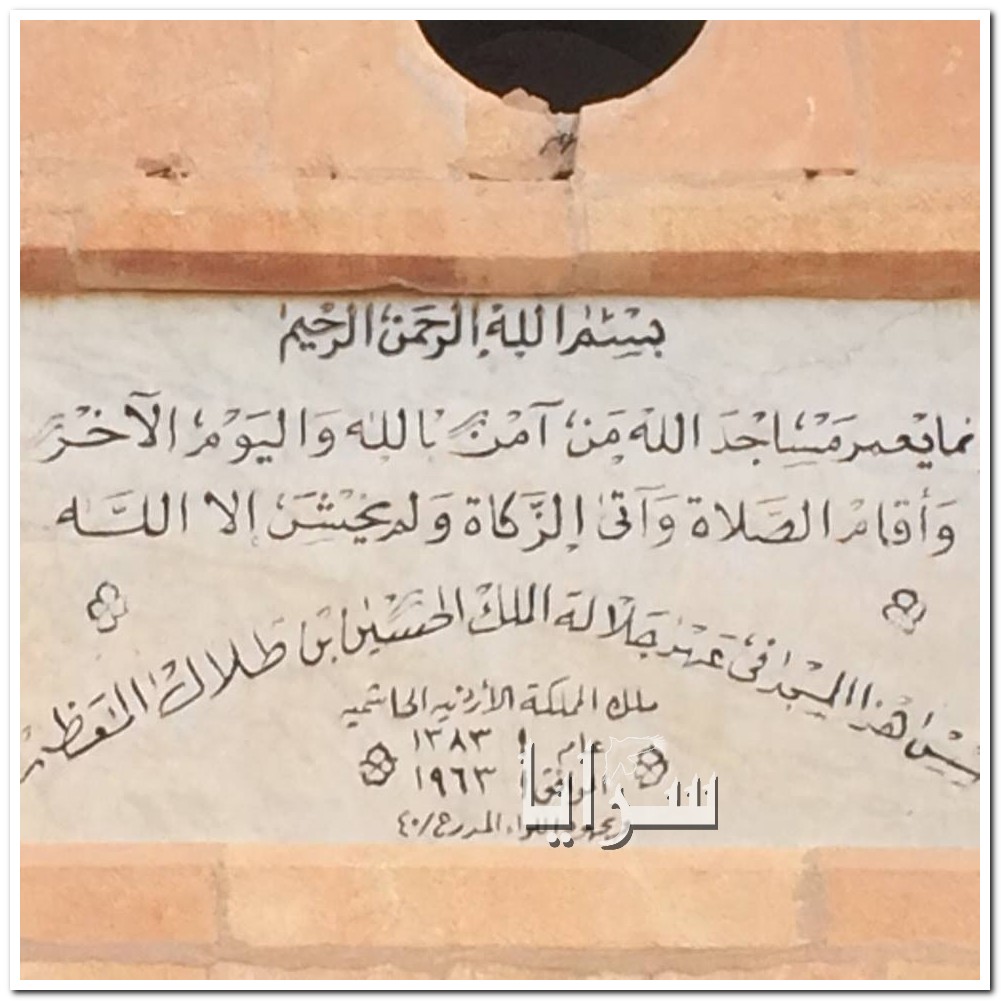 بسم الله الرحمن الرحيم
نما يعمر مَسَاجدَ الله مَن آمن بالله وَاليَوم الآخر
وَأقام الصَّلاة وَآتى الزَّكاة وَلم يخشَ إلا اللَّه
هذا المسجد في عهد جلالة الملك الحسين بن طلال المعظم
ملك المملكة الأردنيه الهاشميه
عام ١٣٨٣
الموافق ١٩٦٣
اللواء المدرع/٤٠
سرايا